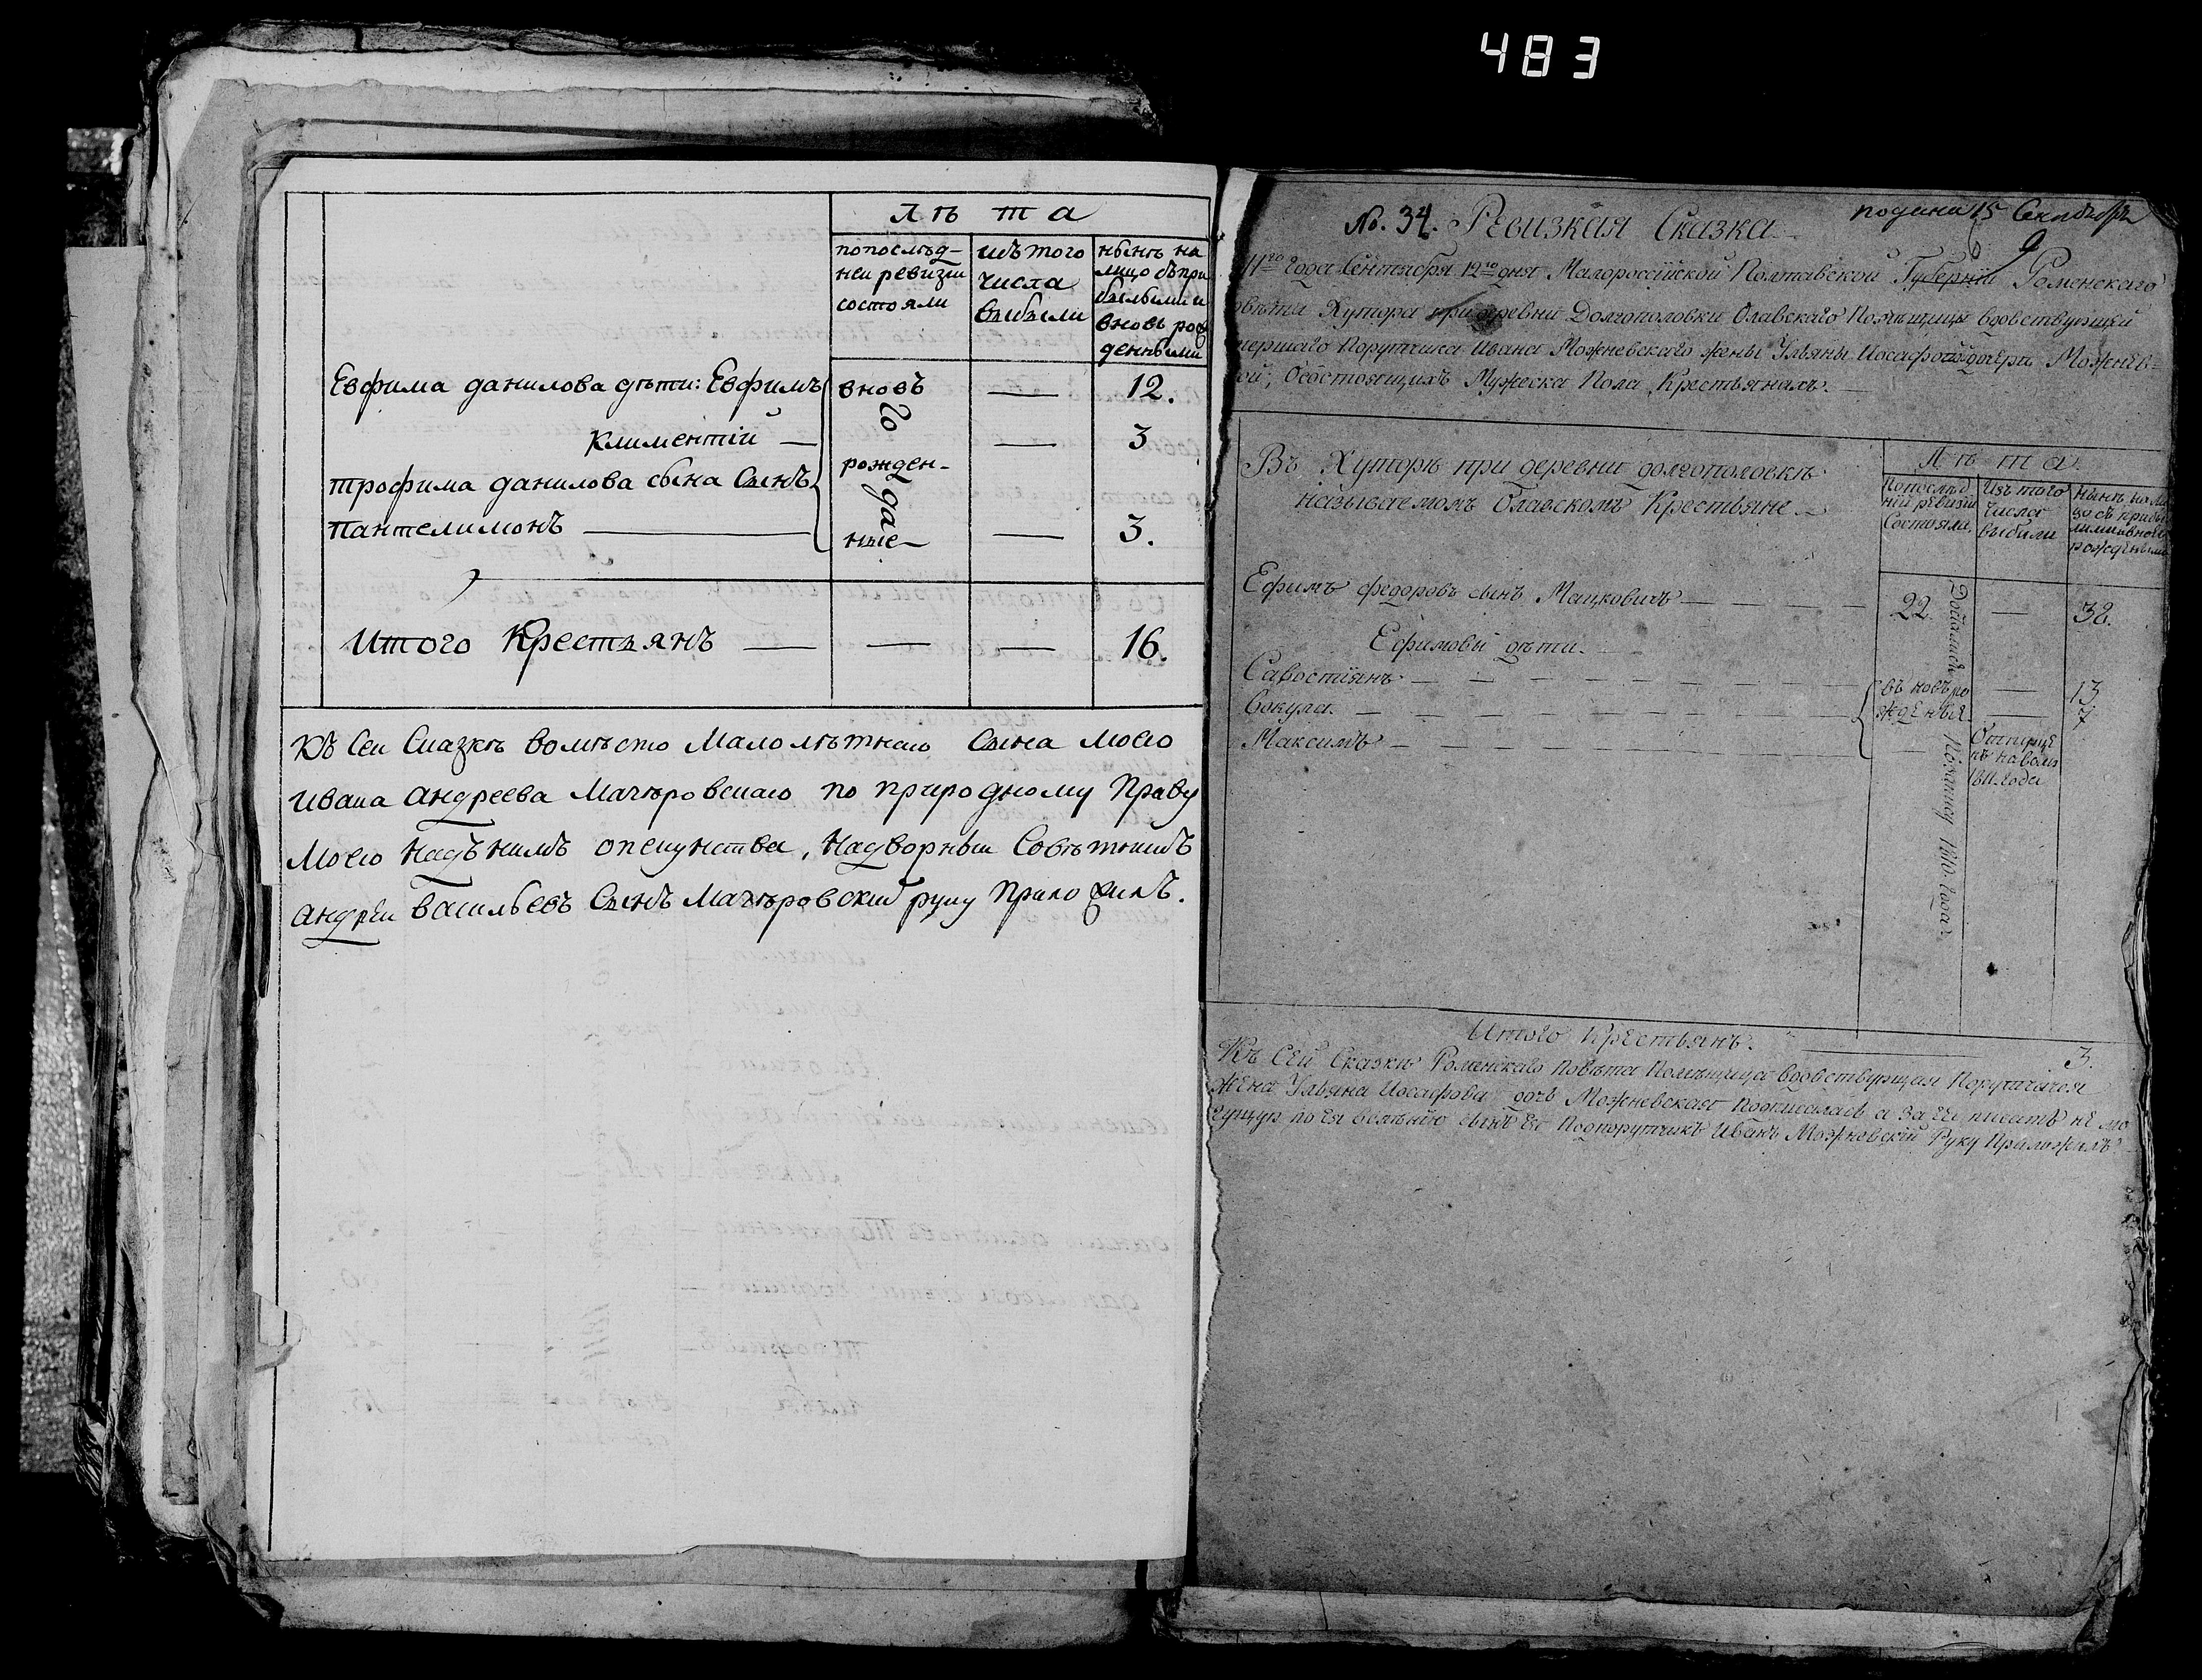 483
Лѣта
попослѣд-
неи ревизіи
состояли
изъ того
числа
выбыли
нынѣ на
лицо съ при
былыми и
вновь рож
денными
Евфима данилова дѣти: Евфимъ вновь — 12.
Климентій — — 3
рожден-
трофима данилова сына Сынъ
пантелимонъ — ные — 3.
Итого Крестьянъ — — — 16.
Къ Сеи Сказкѣ вомѣсто Малолѣтнаго Сына моего
Ивана Андреева Мачѣровскаго по природному Праву
моего надъ нимъ опекунства, надворныи Совѣтникъ
андреи васильевъ Сынъ Мачѣровский руку Приложилъ.
No. 34. Ревизкая Сказка
подана 15 Сентебра
9
11го года Сентября 12го дня Малороссійской Полтавской Губерніи Роменского
Хутора при деревни Долгополовки Олавскаго Помѣщицы вдовствующей
Порутчика Ивана Можневскаго жены Ульяны Иосафовой дочери Можнев-
ой, Осостоящихъ Мужеска Пола Крестьянахъ.
Въ Хуторѣ при деревни долгополовкѣ
называемомъ Олавскомъ Крестьяне
Лѣта
Попослѣд
ній ревизіи
Состояли
Изъ того
числа
выбыли
Нынѣ на ли
цо съ прибы
лыми и вновь
рожденными
Ефимъ федоровъ сынъ Мацковичъ — 22 — 32.
Ефимовы дѣти.
Савостіянъ — въ новъ ро — 13
Вакула — жденые — 7
Максимъ —
1811. года
1810 года
Итого Крестьянъ. — 3.
Къ Сей Сказкѣ Роменскаго Повѣта Помѣщица вдовствующая Порутчичья
жена Ульяна Иосафова дочь Можневская Подписалась а за ее писать не мо
гущую по ея велѣнію сынъ ее Подпорутчикъ Иванъ Можневскій Руку Приложилъ